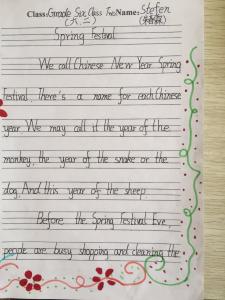 Class: Grade Six Class Two Name: Stefen
(六.二)
Spring Festival
We call Chinese New Year Spring
Festival. There's a name for each Chinese
year. We may call it the year of the
monkey, the year of the snake or the
dog. And this year of the sheep.
Before the Spring Festival Eve,
people are busy shopping and cleaning the